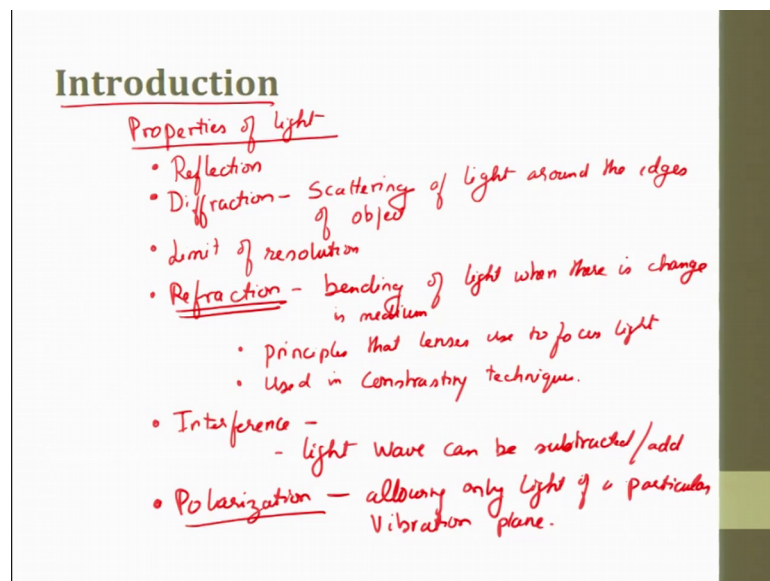 Introduction
Properties of light
• Reflection
• Diffraction - Scattering of light around the edges
of object
• Limit of resolution
• Refraction - bending of light when there is change
is medium
• principles that lenses use to focus light
• used in Constrasting technique.
• Interference -
- light wave can be subtracted/add
• Polarization - allowing only light of a particular
vibration plane.